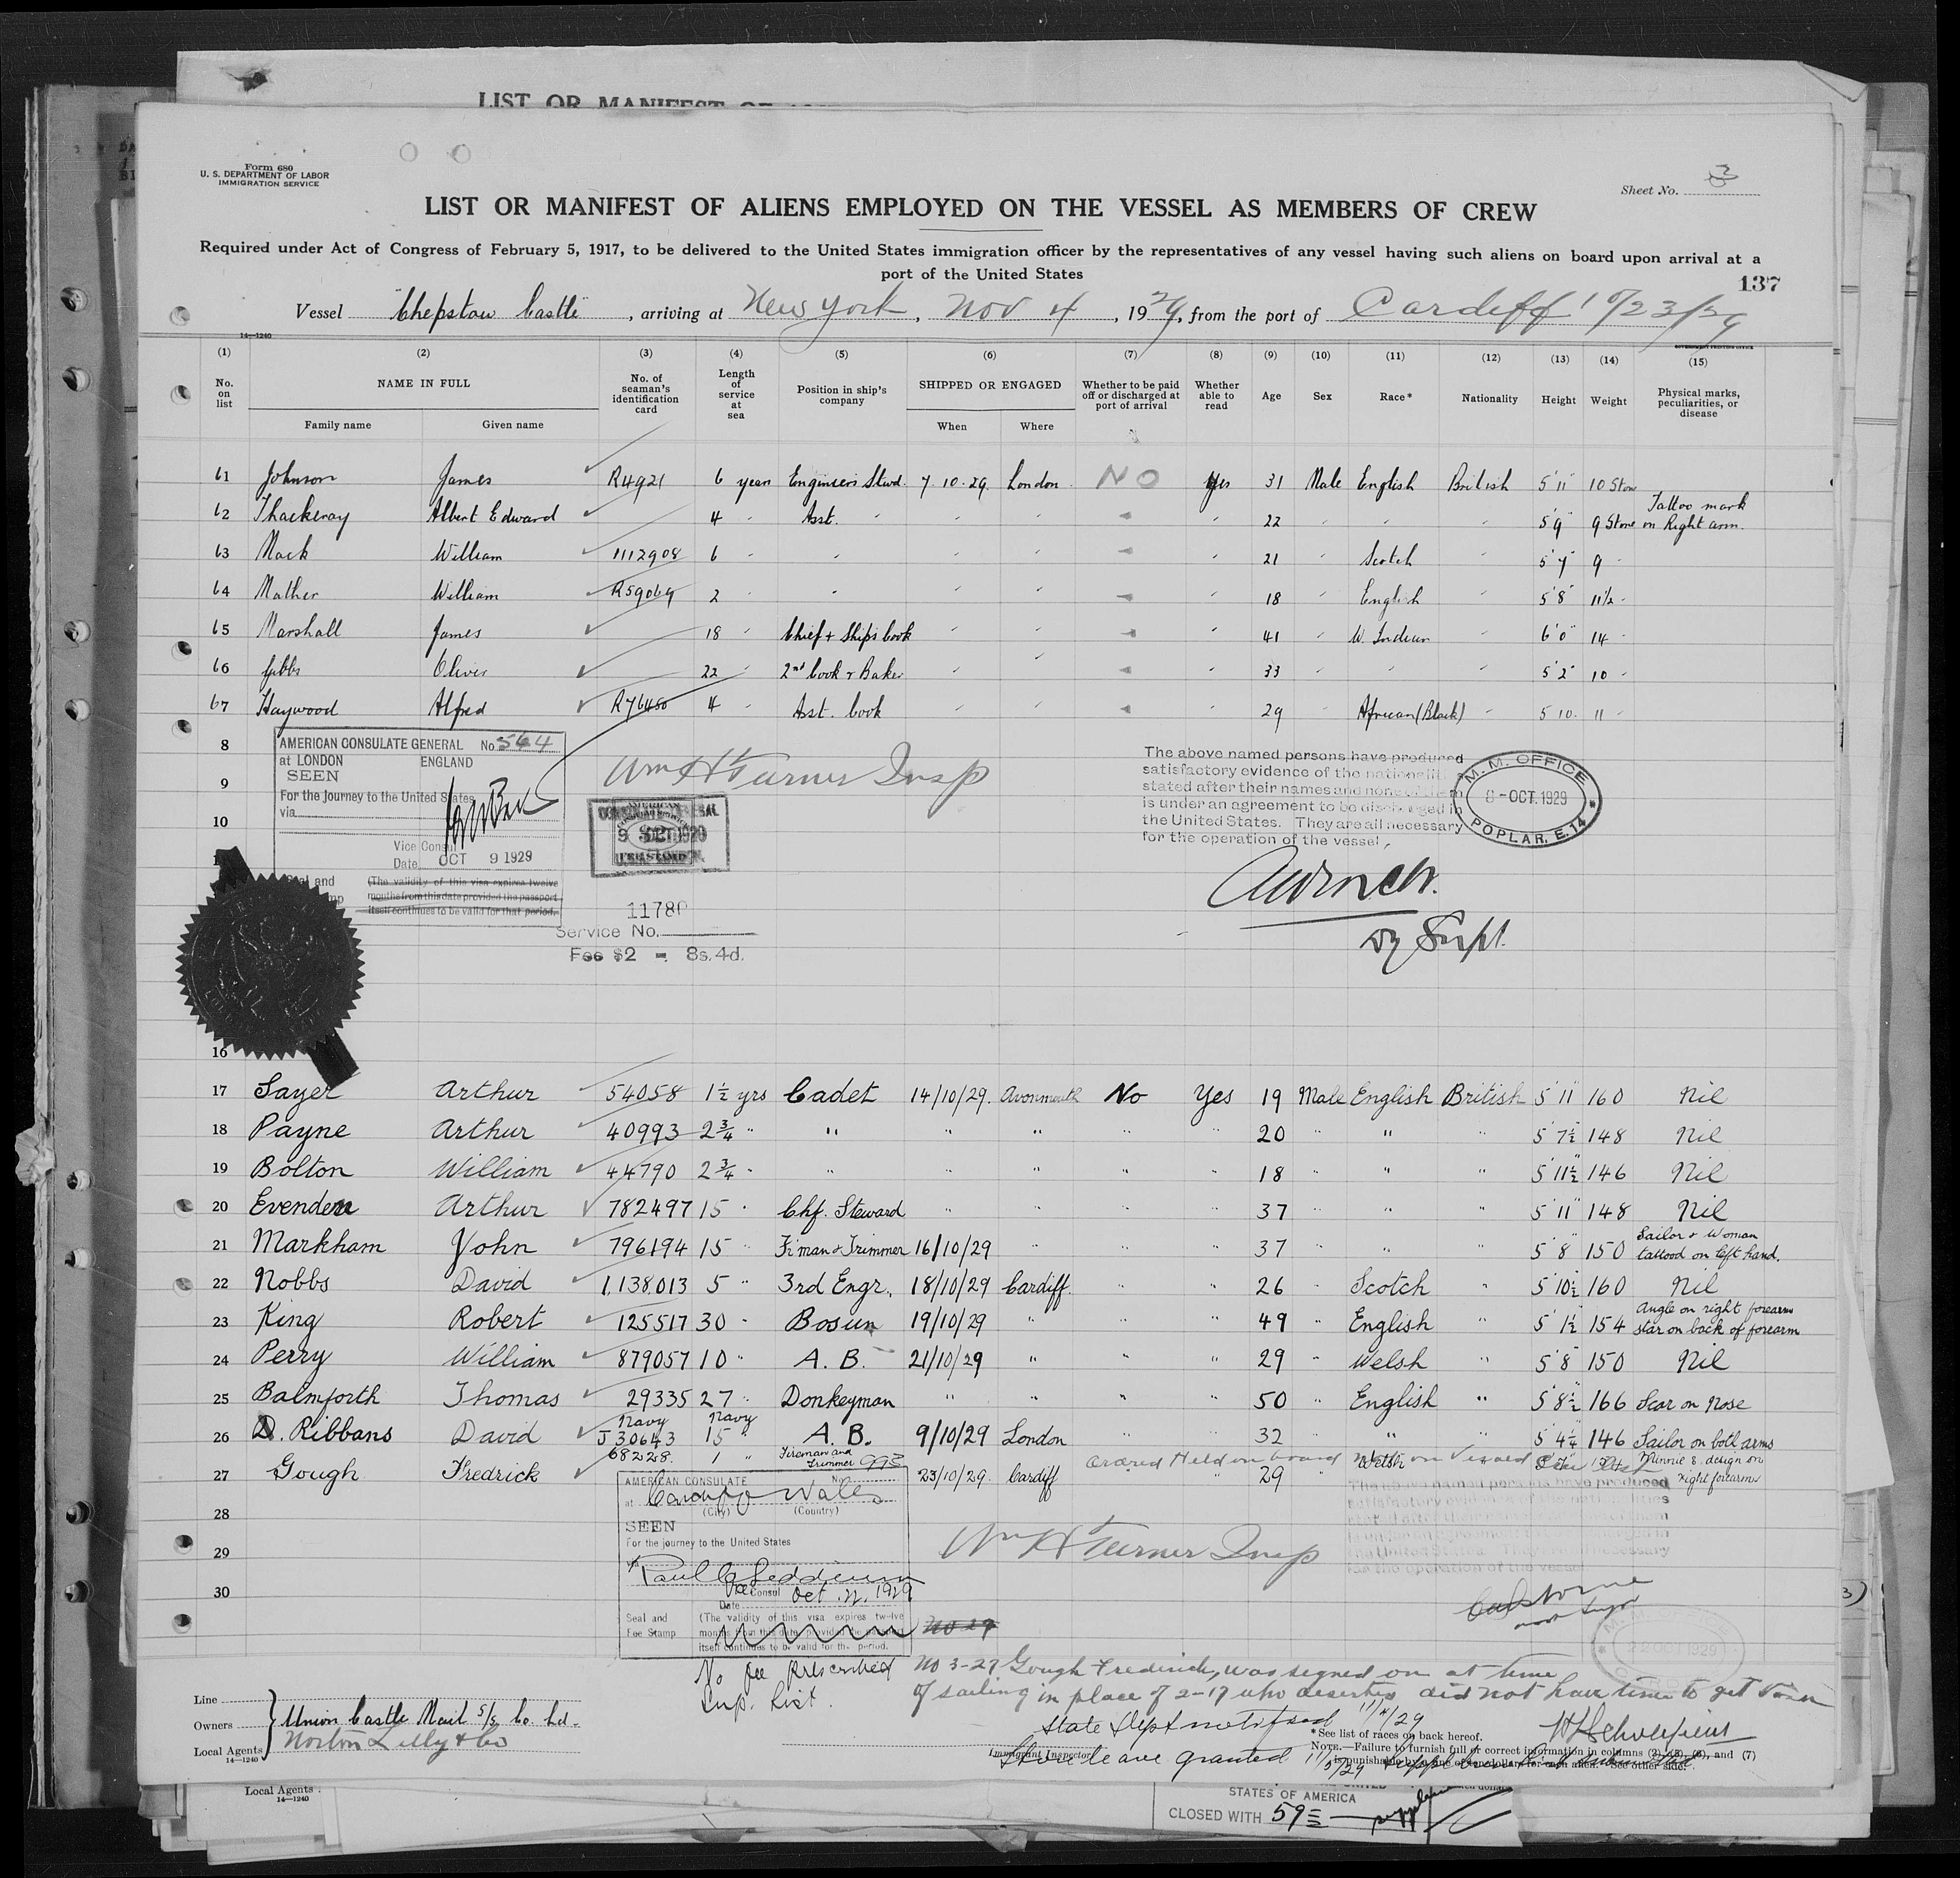 LIST OR MANIFEST OF
Form 680
U. S. DEPARTMENT OF LABOR
IMMIGRATION SERVICE
Sheet No. 3
LIST OR MANIFEST OF ALIENS EMPLOYED ON THE VESSEL AS MEMBERS OF CREW
Required under Act of Congress of February 5, 1917, to be delivered to the United States immigration officer by the representatives of any vessel having such aliens on board upon arrival at a
port of the United States
137
Vessel "Chepstow Castle", arriving at New York, Nov 4, 1929, from the port of Cardiff 10/23/29
14—1240
(1) (2) (3) (4) (5) (6) (7) (8) (9) (10) (11) (12) (13) (14) (15)
No. on list NAME IN FULL Family name Given name No. of seaman's identification card Length of service at sea Position in ship's company SHIPPED OR ENGAGED When Where Whether to be paid off or discharged at port of arrival Whether able to read Age Sex Race* Nationality Height Weight Physical marks, peculiarities, or disease
61 Johnson James R4921 6 years Engineers Stwd. 7.10.29 London NO Yes 31 Male English British 5'11" 10 Stone
62 Thackeray Albert Edward 4 " Asst. " " " " " 22 " " " 5'9" 9 Stone Tattoo mark on Right arm.
63 Mack William 1112908 6 " " " " " " 21 " Scotch " 5'7" 9 "
64 Mather William R59069 2 " " " " " " 18 " English " 5'8" 11½ "
65 Marshall James 18 " Chief & Ships Cook " " " " 41 " W. Indian " 6'0" 14 "
66 Gibbs Oliver 22 " 2nd Cook & Baker " " " " 33 " " " 5'2" 10 "
67 Haywood Alfred R76450 4 " Asst. Cook " " " " 29 " African (Black) " 5 10. 11 "
8
9
10
AMERICAN CONSULATE GENERAL No. 564
at LONDON ENGLAND
SEEN
For the journey to the United States
via
Vice Consul
Date OCT 9 1929
Seal and
(The validity of this visa expires twelve
months from this date provided the passport
itself continues to be valid for that period.
Wm H Turner Insp
11780
Service No.
Fee $2 = 8s. 4d.
The above named persons have produced
satisfactory evidence of the nationalities
stated after their names and none of them
is under an agreement to be discharged in
the United States. They are all necessary
for the operation of the vessel.
M. M. OFFICE
8-OCT.1929
POPLAR, E.14
Dy Supt.
16
17 Sayer Arthur 54058 1½ yrs Cadet 14/10/29. Avonmouth No Yes 19 Male English British 5'11 160 Nil
18 Payne Arthur 40993 2¾ " " " " " " 20 " " " 5'7½ 148 Nil
19 Bolton William 44790 2¾ " " " " " " 18 " " " 5'11½ 146 Nil
20 Evenden Arthur 782497 15 " Chf. Steward " " " " 37 " " " 5'11" 148 Nil
21 Markham John 796194 15 " F'man & Trimmer 16/10/29 " " " 37 " " " 5'8 150 Sailor & Woman tattooed on left hand.
22 Nobbs David 1,138,013 5 " 3rd Engr. 18/10/29 Cardiff. " " 26 " Scotch " 5'10½ 160 Nil
23 King Robert 125517 30 " Bosun 19/10/29 " " " 49 " English " 5'1½ 154 Angle on right forearm star on back of forearm
24 Perry William 879057 10 " A. B. 21/10/29 " " " 29 " Welsh " 5'8 150 Nil
25 Balmforth Thomas 29335 27 " Donkeyman " " " " 50 " English " 5'8½ 166 Scar on Nose
26 D. Ribbans David Navy J30643 Navy 15 " A. B. 9/10/29 London 32 " " " 5'4¼ 146 Sailor on both arms
27 Gough Fredrick 68228. 1 " Fireman and Trimmer 23/10/29. Cardiff " 29 Welsh Minnie & design on right forearm
Ordered Held on board
28
29
30
AMERICAN CONSULATE No. 993
at Cardiff Wales
(City) (Country)
SEEN
For the journey to the United States
Vice Consul
Date Oct. 22, 1929
Seal and
Fee Stamp
(The validity of this visa expires twelve
months from this date provided the passport
itself continues to be valid for that period.
Wm H Turner Insp
The above named persons have produced
satisfactory evidence of the nationalities
stated after their names and none of them
for the operation of the vessel
22 OCT 1929
No 29
No fee prescribed
Sup. List.
No 3-27 Gough Frederick, was signed on at time
of sailing in place of 2-17 who deserted did not have time to get visa
State Dept notified 11/4/29
Shore leave granted 11/5/29
Line
Owners Union Castle Mail S/S Co. Ld.
Local Agents Norton Lilly & Co
14—1240
Immigrant Inspector
*See list of races on back hereof.
NOTE.—Failure to furnish full or correct information in columns (2), (5), (6), and (7)
is punishable by a fine of ten dollars for each alien. See other side.
Local Agents
14—1240
STATES OF AMERICA
CLOSED WITH 59